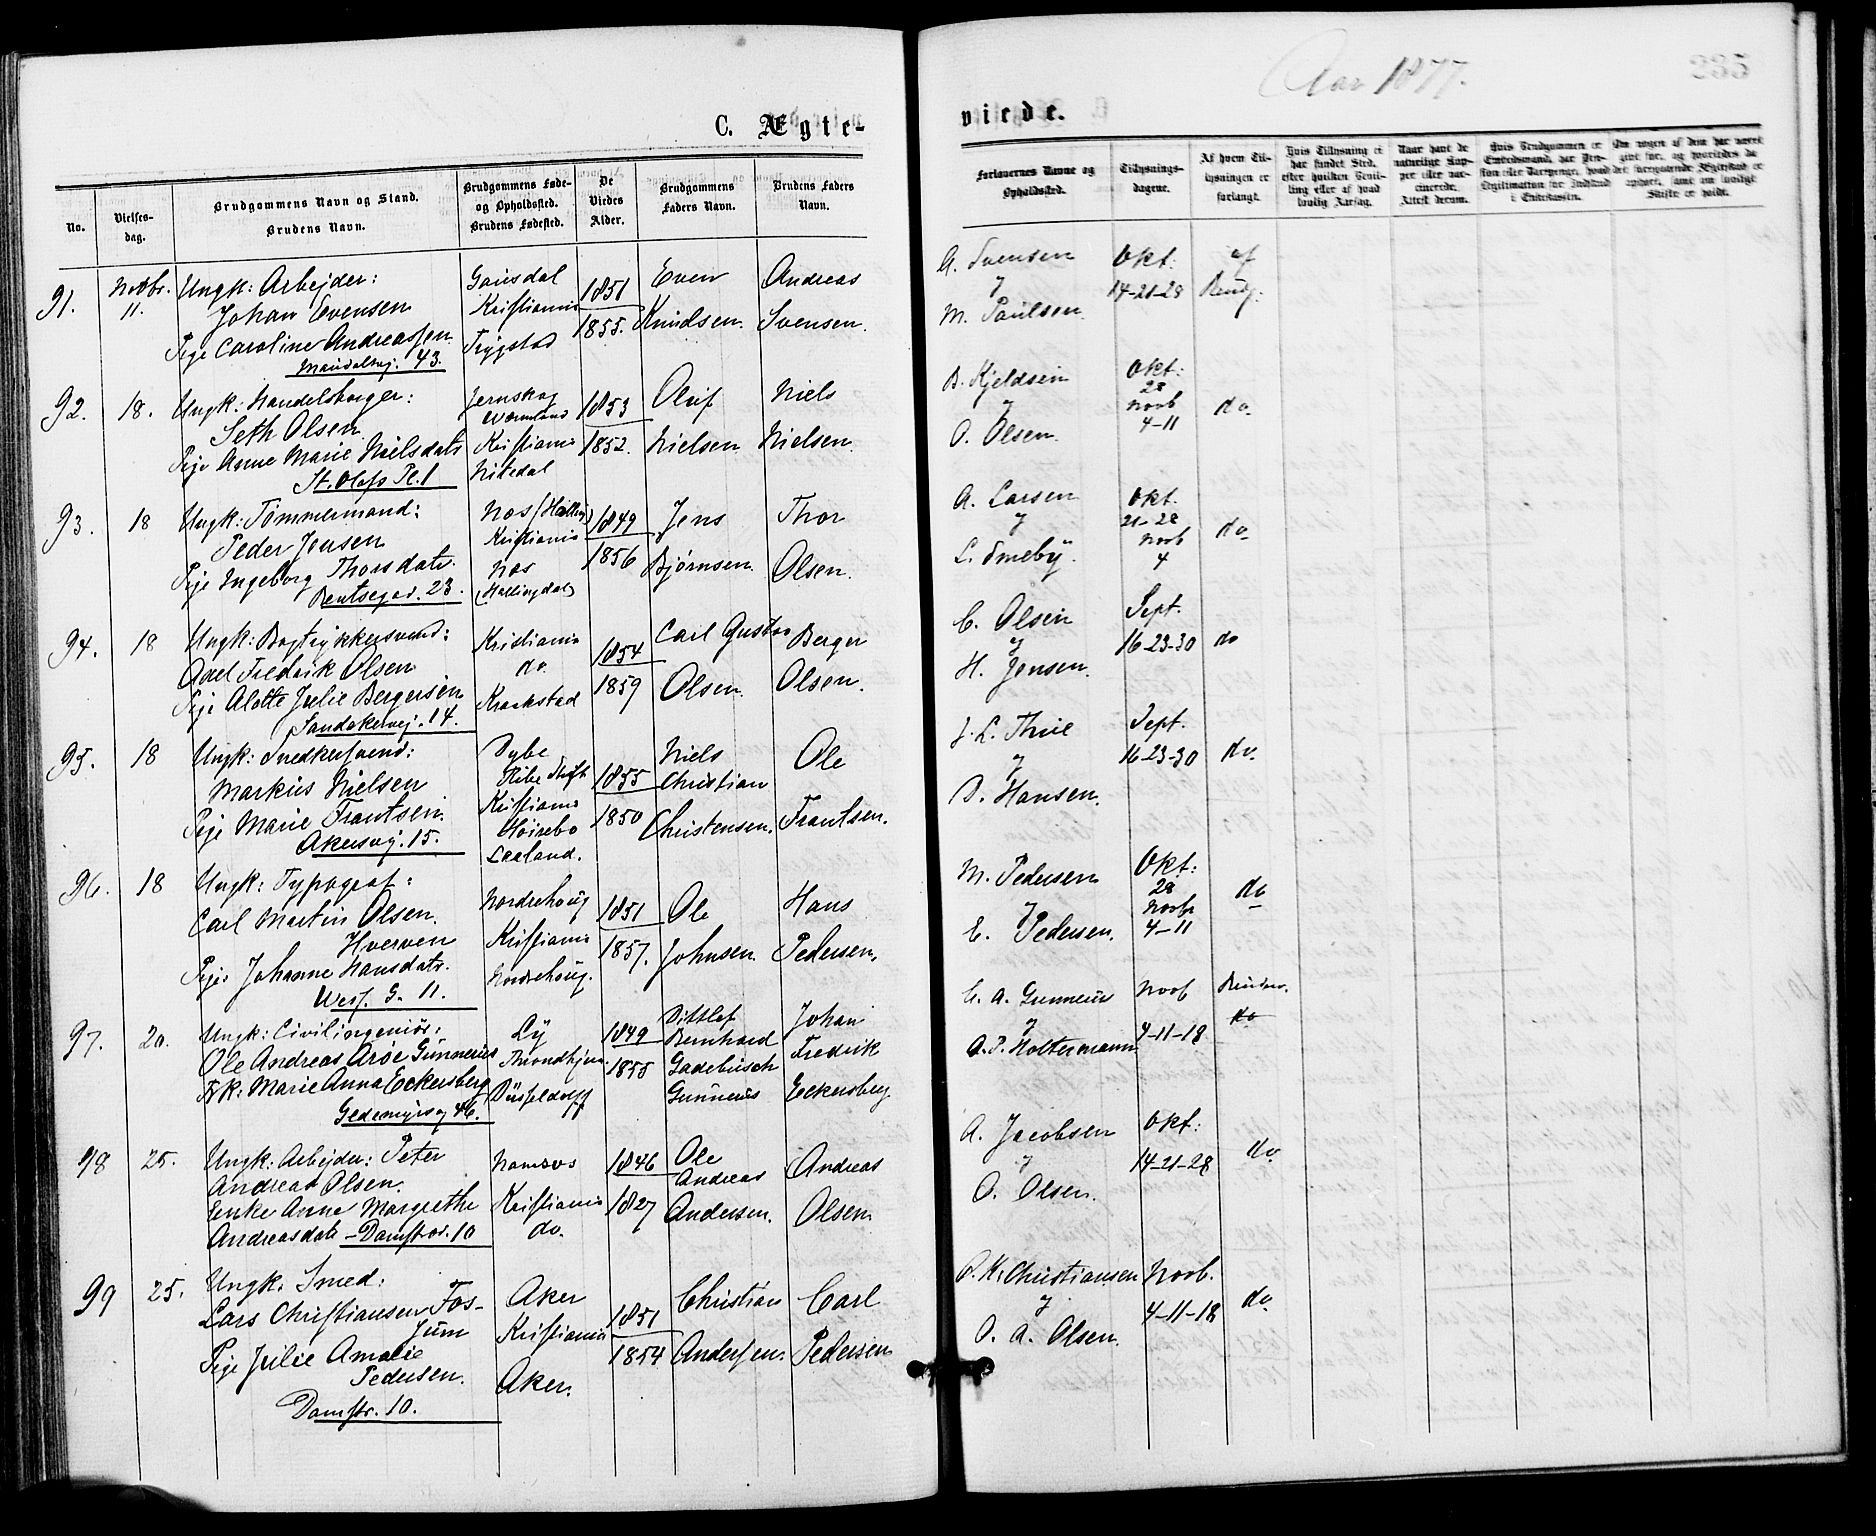 Aar 1877.
235
C. Ægte-
viede.
No.
Vielses-
dag.
Brudgommens Navn og Stand.
Brudens Navn.
Brudgommens Føde-
og Opholdssted.
Brudens Fødested.
De
Viedes
Alder.
Brudgommens
Faders Navn.
Brudens Faders
Navn.
Forlovernes Navne og
Opholdssted.
Tillysnings-
dagene.
Af hvem Til-
lysningen er
forlangt.
Hvis Tillysning ei
har fundet Sted,
efter hvilken Bevil-
ling eller af hvad
lovlig Aarsag.
Naar havt de
naturlige Kop-
per eller vac-
cinerede.
Attest derom.
91.
Novbr.
11.
Ungk: Arbejder:
Johan Evensen
Pige Caroline Andreassen
43.
Gausdal
Kristiania
Trygstad
1851
1855.
Even
Knudsen.
Andreas
Svensen.
A. Svensen
M. Paulsen.
Okt.
14-21-28
af
92.
18.
Ungk: Handelsborger:
Seth Olsen
Pige Anne Marie Nielsdatr
St. Olafs Pl. 1
Jernskog
Wermland
Kristiania
Nitedal
1853
1852.
Oluf
Nielsen
Niels
Nielsen.
B. Kjeldsen
O. Olsen.
Okt:
28
Novb
4-11
do.
93.
18
Ungk: Tømmermand:
Peder Jensen
Pige Ingeborg Thorsdatr.
Bentsegad. 23.
Næs (Halling)
Kristiania
Næs
(Hallingdal)
1849
1856
Jens
Bjørnsen.
Thor
Olsen.
A. Larsen
L. Smeby.
Okt.
21-28
Novb
4
do
94.
18
Ungk: Bogtrykkersvend:
Axel Fredrik Olsen
Pige Alette Julie Bergersen
Sandakervej. 14.
Kristiania
do.
Kraakstad
1854
1859
Carl Gustav
Olsen.
Berger
Olsen.
C. Olsen
H. Jensen.
Sept.
16-23-30
do
95.
18
Ungk: Snedkersvend:
Markus Nielsen
Pige Marie Frantsen.
Akersvej. 15.
Dybe
Ribe Stift
Kristiania
Høirebo
Laaland.
1855
1850
Niels
Christian
Christensen.
Ole
Frantsen.
J. L. Thue
O. Hansen.
Sept.
16-23-30
do.
96.
18
Ungk: Typograf:
Carl Martin Olsen
Hverven
Pige Johanne Hansdatr.
Wess. G. 11.
Nordrehoug
Kristiania
Nordrehoug.
1851
1857.
Ole
Johnsen.
Hans
Pedersen.
M. Pedersen
E. Pedersen.
Okt:
28
Novb
4-11
do
97.
20.
Ungk: Civilingeniør:
Ole Andreas Arøe Gunnerius
Frk: Marie Anna Eckersberg
Throndhjem
Düsseldorff
1849
1855
Dittlef
Bernhard
Gadebusch
Gunnerus
Johan
Fredrik
Eckersberg.
E. A. Gunnerus
A. P. Holtermann
Novb
4-11-18
do
98
25.
Ungk: Arbejder: Peter
Andreas Olsen.
Enke Anne Margrethe
Andreasdatr - Damstrød. 10
Namsos
Kristiania
do.
1846
1827
Ole
Andreas
Andersen.
Andreas
Olsen
A. Jacobsen
O. Olsen.
Okt:
14-21-28
do.
99
25.
Ungk. Smed:
Lars Christiansen Fos-
sum
Pige Julie Amalie
Pedersen.
Damstr. 10.
Aker
Kristiania
Aker.
1851
1854
Christian
Andersen.
Carl
Pedersen
P. K. Christiansen
O. A. Olsen.
Novb.
4-11-18
do.